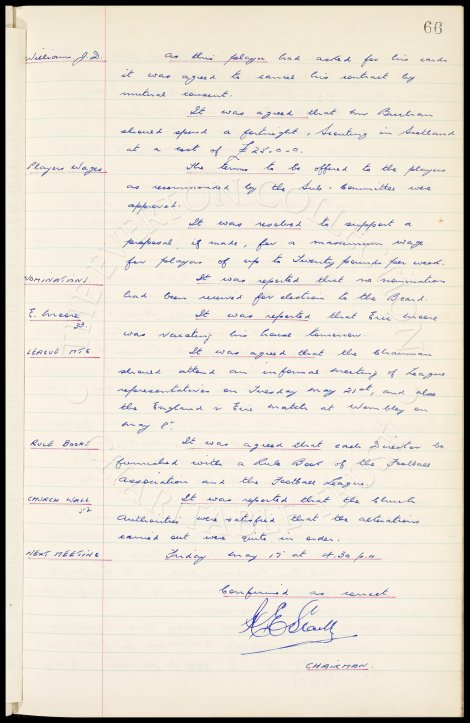 66
Williams J.D. As this player had asked for his cards
it was agreed to cancel his contract by
mutual consent.
It was agreed that Mr Buchan
should spend a fortnight, Scouting in Scotland
at a cost of £25-0-0.
Players Wages The terms to be offered to the players
as recommended by the Sub-Committee was
approved.
It was resolved to support a
proposal, if made, for a maximum wage
for players of up to Twenty pounds per week.
NOMINATIONS It was reported that no nomination
had been received for election to the Board.
E. Moore It was reported that Eric Moore
was vacating his house tomorrow
LEAGUE MTG It was agreed that the Chairman
should attend an informal meeting of League
representatives on Tuesday May 21st, and also
the England v Eire match at Wembley on
May 8th
RULE BOOKS It was agreed that each Director be
furnished with a Rule Book of the Football
Association and the Football League.
CHURCH WALL It was reported that the Church
Authorities were satisfied that the alterations
carried out were quite in order.
NEXT MEETING Friday May 17th at 4.30 p.m
Confirmed as correct
CHAIRMAN.
THE EVERTON COLLECTION
CHARITABLE